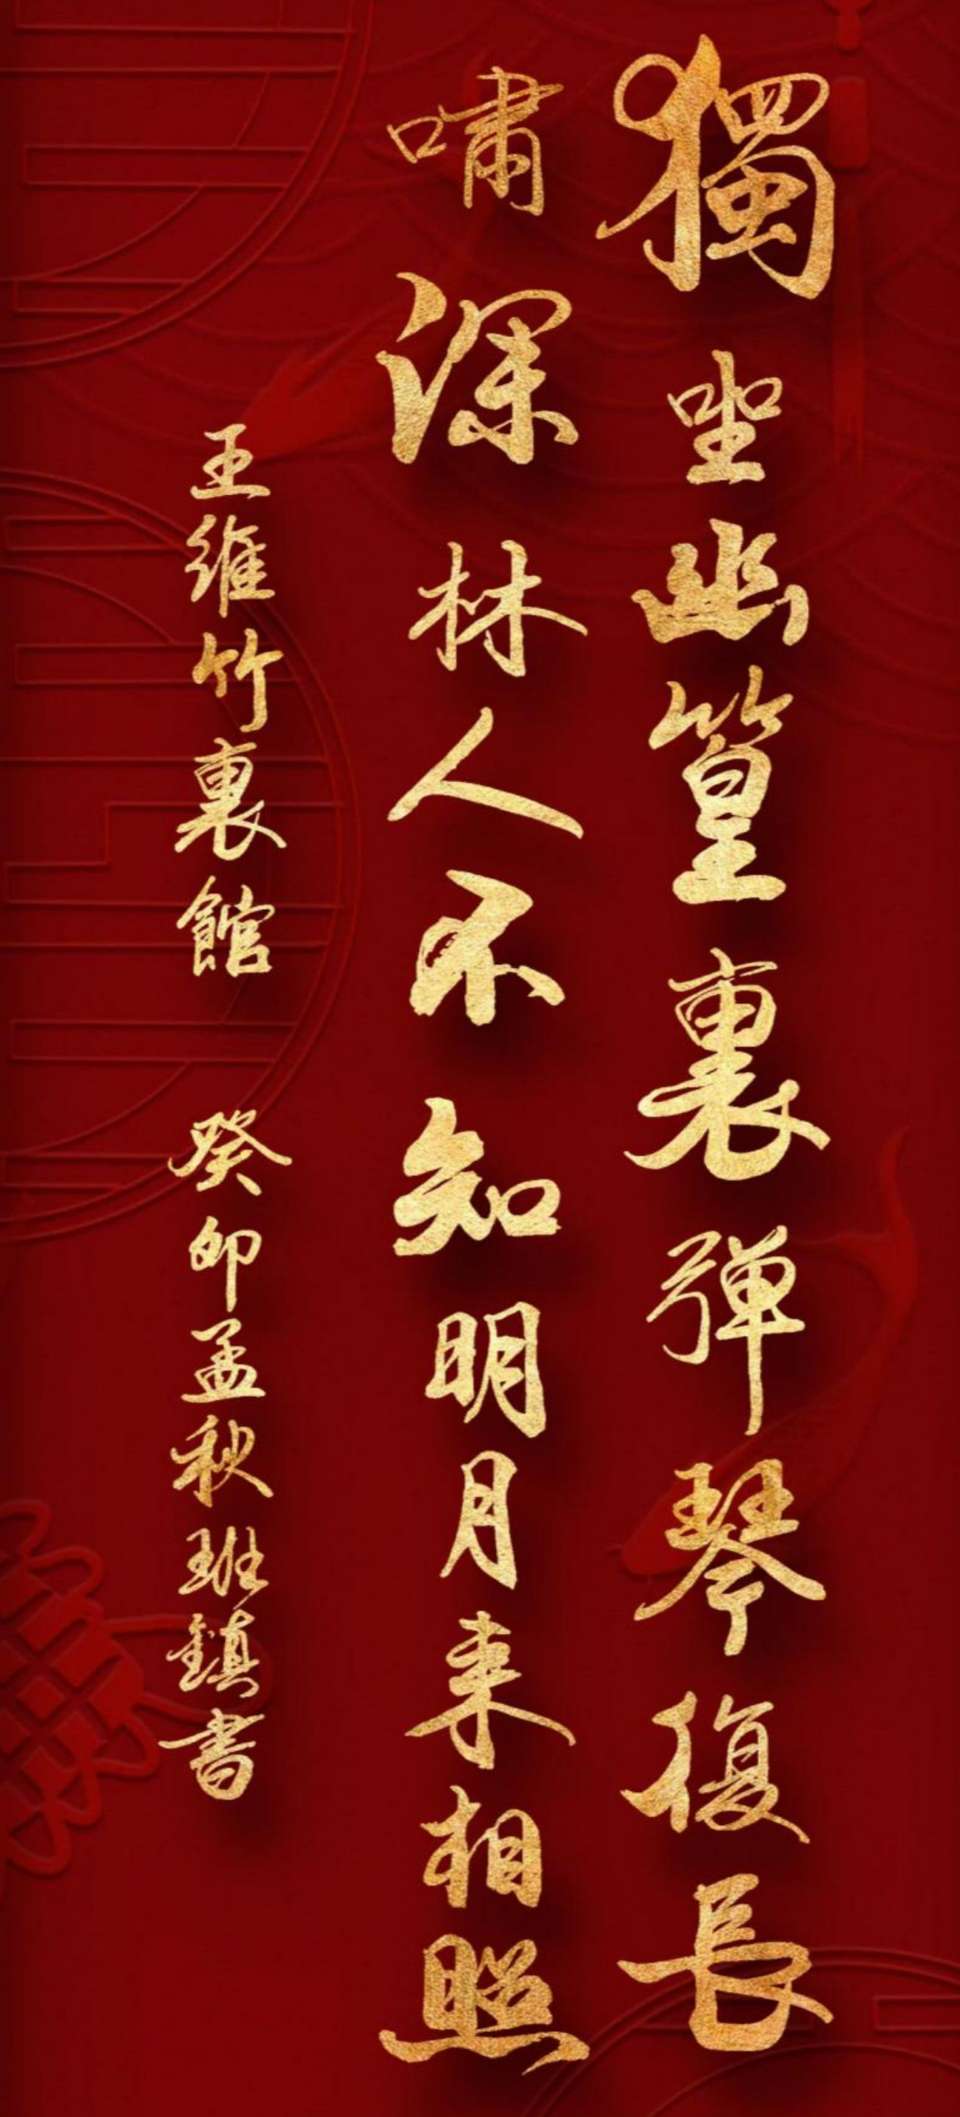 獨坐幽篁裏彈琴復長
嘯深林人不知明月来相照
王維竹裏館 癸卯孟秋班鎮書